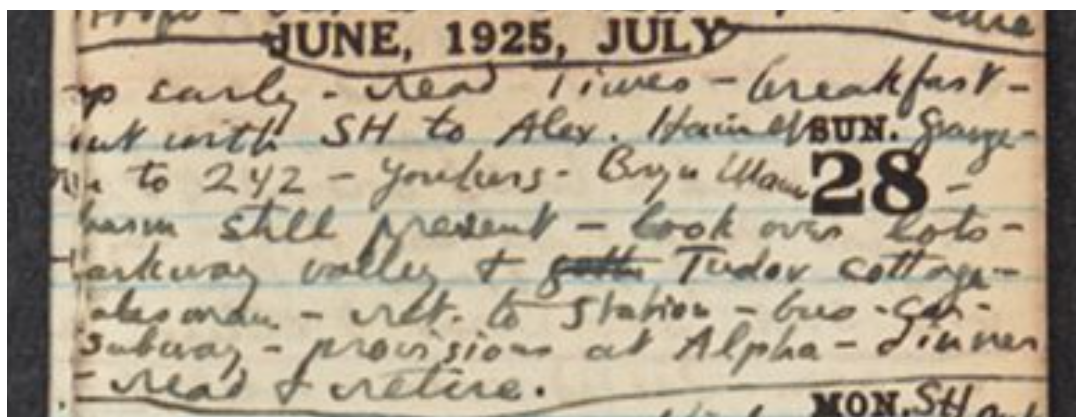 JUNE, 1925, JULY
up early - read Times - breakfast -
out with SH to Alex. Hamilton Grange -
SUN.
to 242 - Yonkers - Bryn Mawr
28 -
charm still present - look over lots -
Parkway valley & Tudor cottage -
salesman - ret. to station - bus - car -
subway - provisions at Alpha - dinner
- read & retire.
MON. SH